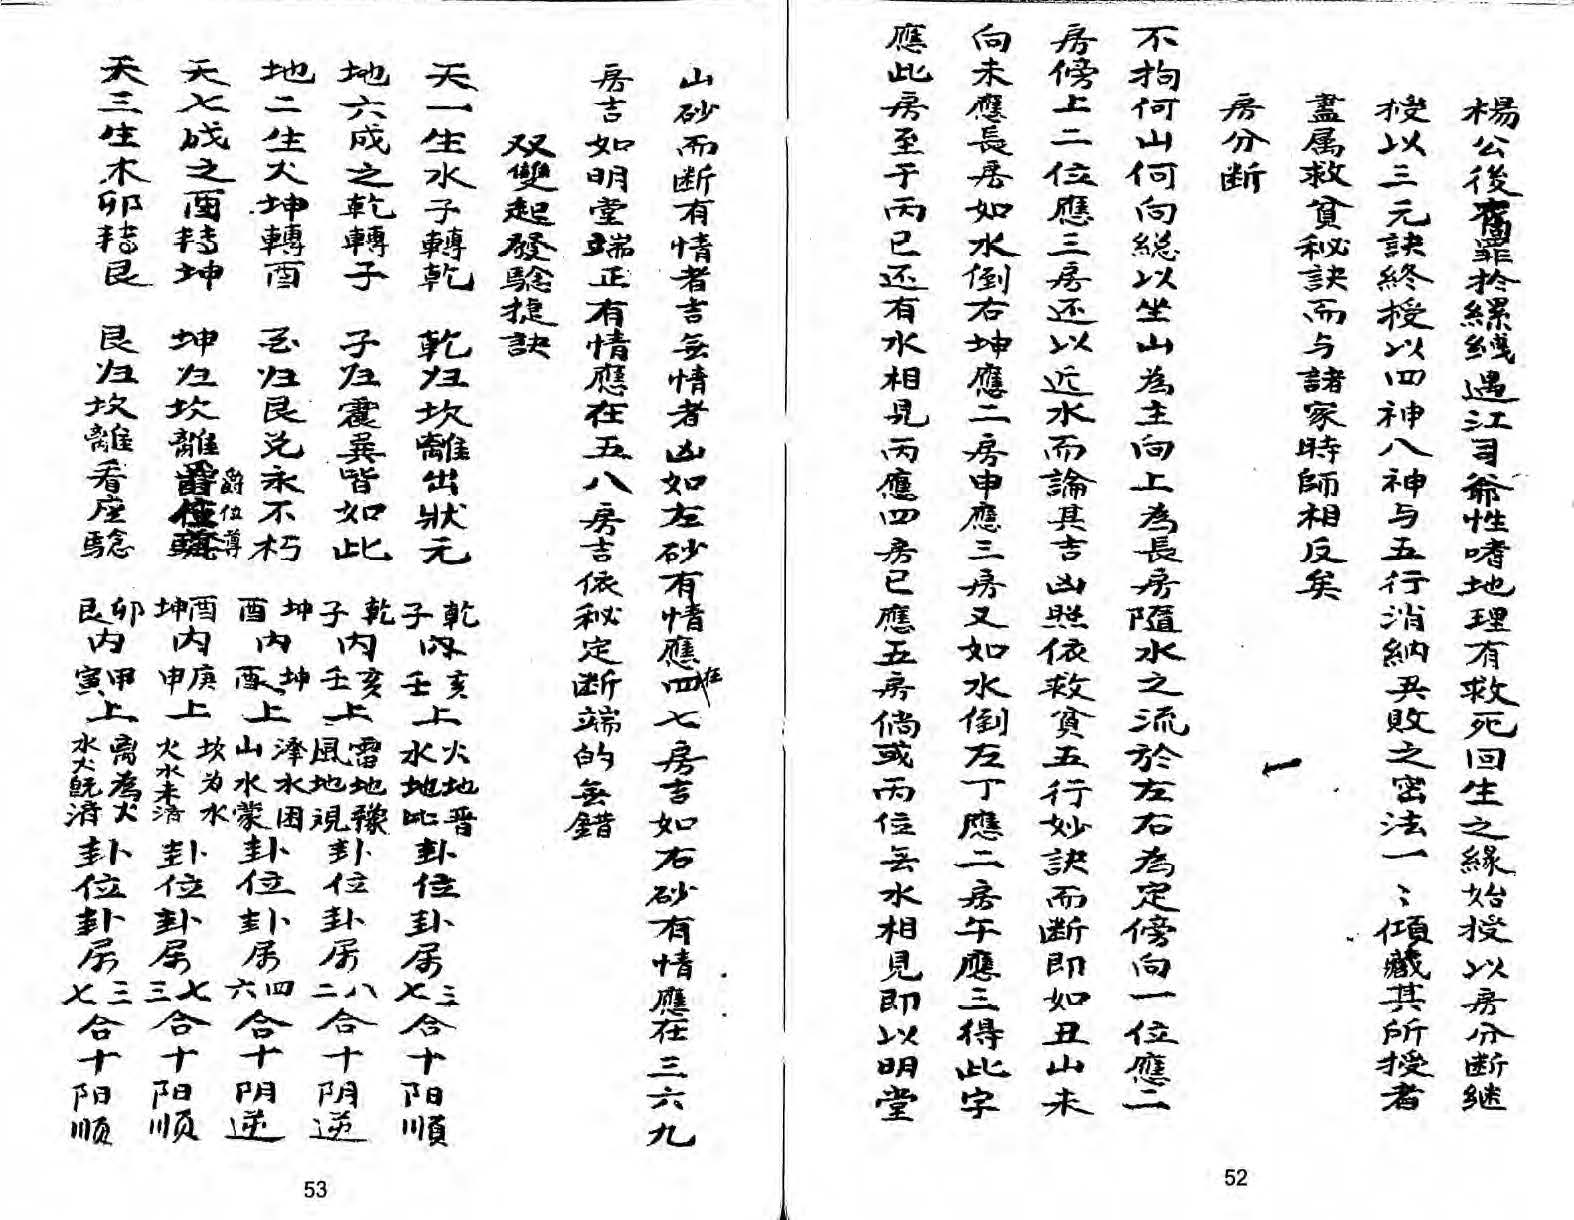 楊公後罹罪於縲絏遇江司爺性嗜地理有救死回生之緣始授以房分断継
授以三元訣終授以四神八神与五行消納興敗之密法一〻傾藏其所授者
盡属救貧秘訣而与諸家時師相反矣
房分断
不拘何山何向総以坐山為主向上為長房隨水之流於左右為定傍向一位應二
房傍上二位應三房还以近水而論其吉凶照依救貧五行妙訣而断即如丑山未
向未應長房如水倒右坤應二房申應三房又如水倒左丁應二房午應三得此字
應此房至于丙巳还有水相見丙應四房巳應五房倘或丙位無水相見即以明堂
52
山砂而断有情者吉無情者凶如左砂有情應在四七房吉如右砂有情應在三六九
房吉如明堂端正有情應在五八房吉依秘定断端的無錯
双雙起發驗捷訣
天一生水子轉乾 乾归坎離出狀元 乾亥子内壬上火地晋水地比卦位卦居三七合十阳順
地六成之乾轉子 子归震巽皆如此 乾亥子内壬上雷地豫風地观卦位卦居八二合十阴逆
地二生火坤轉酉 酉归艮兑永不朽 坤坤酉内酉上澤水困山水蒙卦位卦居四六合十阴逆
天七成之酉转坤 坤归坎離爵位尊 酉庚坤内申上坎为水火水未濟卦位卦居七三合十阳順
天三生木卯转艮 艮归坎離看座驗 卯甲艮内寅上离為火水火既濟卦位卦居三七合十阳順
53